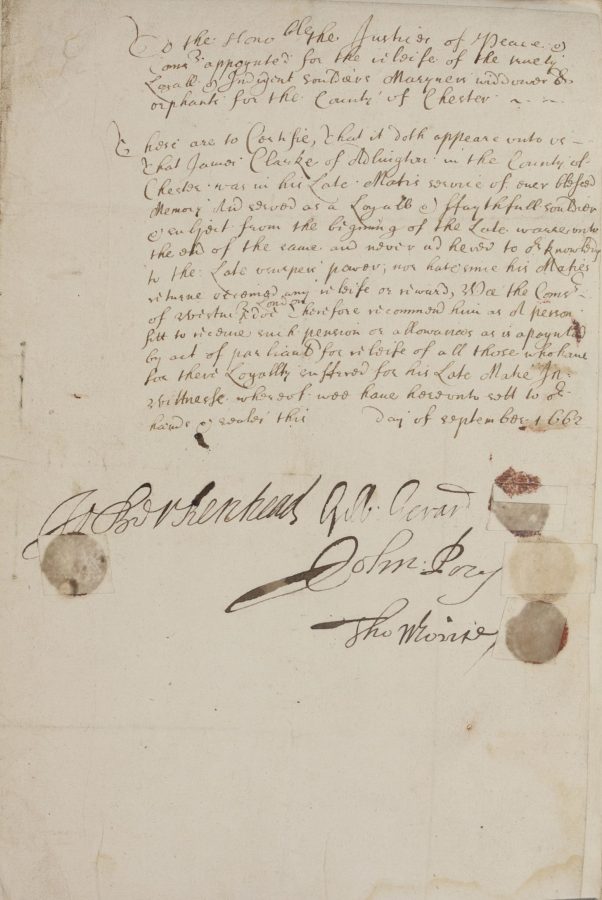 To the Hono ble the Justices of Peace &
Comrs appoynted for the releife of the
Loyall & Indigent souldiers Maryners widdowes &
orphants for the County of Chester
These are to Certifie, that it doth appeare unto us
that James Clarke of Adlington in the County of
Chester was in his Late Maties service of ever blessed
Memory And served as a Loyall & ffaythfull souldier
& subject from the begining of the Late warre unto
the end of the same and never ad hered to or knowledg
to the Late usurpers power, nor hath since his Maties
returne received any releife or reward, Wee the Comrs
of London
of Doe Therefore recommend him as a person
fitt to receive such pension or allowances as is apoynted
by act of parliamt for releife of all those who have
for there Loyallty suffered for his Late Matie In
wittnesse whereof wee have hereunto sett to or
hands & seales this day of september 1662
Jo Berkenhead Gilb: Gerard
John Pory
Tho